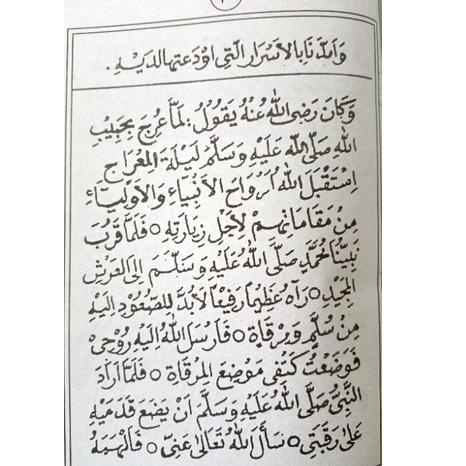 وَامْدُدْنَا بِالْاَسْرَارِ الَّتِي اَوْدَعْتَهَا لَدَيْهِ.
وَكَانَ رَضِيَ اللهُ عَنْهُ يَقُوْلُ: لَمَّا عُرِجَ بِحَبِيْبِ
اللهِ صَلَّى اللهُ عَلَيْهِ وَسَلَّمَ لَيْلَةَ الْمِعْرَاجِ
اِسْتَقْبَلَ اللهُ اَرْوَاحَ الْاَنْبِيَاءِ وَالْاَوْلِيَاءِ
مِنْ مَقَامَاتِهِمْ لِاَجْلِ زِيَارَتِهِ ○ فَلَمَّا قَرُبَ
نَبِيُّنَا مُحَمَّدٌ صَلَّى اللهُ عَلَيْهِ وَسَلَّمَ اِلَى الْعَرْشِ
الْمَجِيْدِ ○ رَآهُ عَظِيْمًا رَفِيْعًا لَابُدَّ لِلصُّعُوْدِ اِلَيْهِ
مِنْ سُلَّمٍ وَمِرْقَاةٍ ○ فَاَرْسَلَ اللهُ اِلَيْهِ رُوْحِيْ
فَوَضَعْتُ كَتِفِى مَوْضِعَ الْمِرْقَاةِ ○ فَلَمَّا اَرَادَ
النَّبِيُّ صَلَّى اللهُ عَلَيْهِ وَسَلَّمَ اَنْ يَضَعَ قَدَمَيْهِ
عَلَى رَقَبَتِي ○ سَأَلَ اللهَ تَعَالَى عَنِّى ○ فَاَلْهَمَهُ